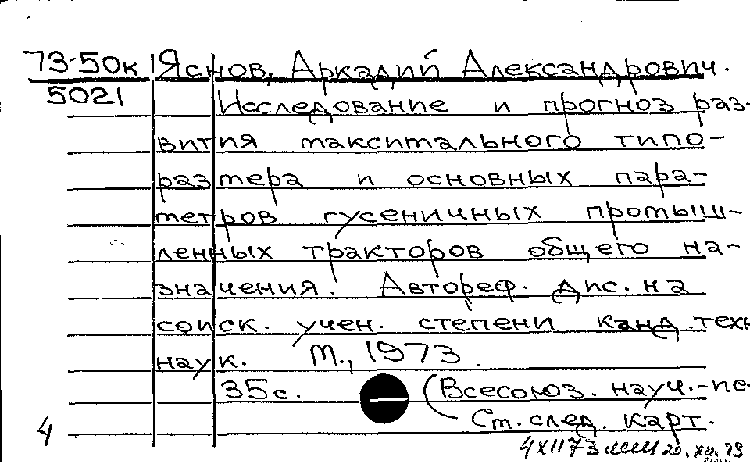 73-50к Яснов, Аркадий Александрович.
5021 Исследование и прогноз раз-
вития максимального типо-
размера и основных пара-
метров гусеничных промыш-
ленных тракторов общего на-
значения. Автореф. дис. на
соиск. учен. степени канд. техн
наук. М., 1973.
35 с. (Всесоюз. науч.-ис
Ст. след. карт.
4